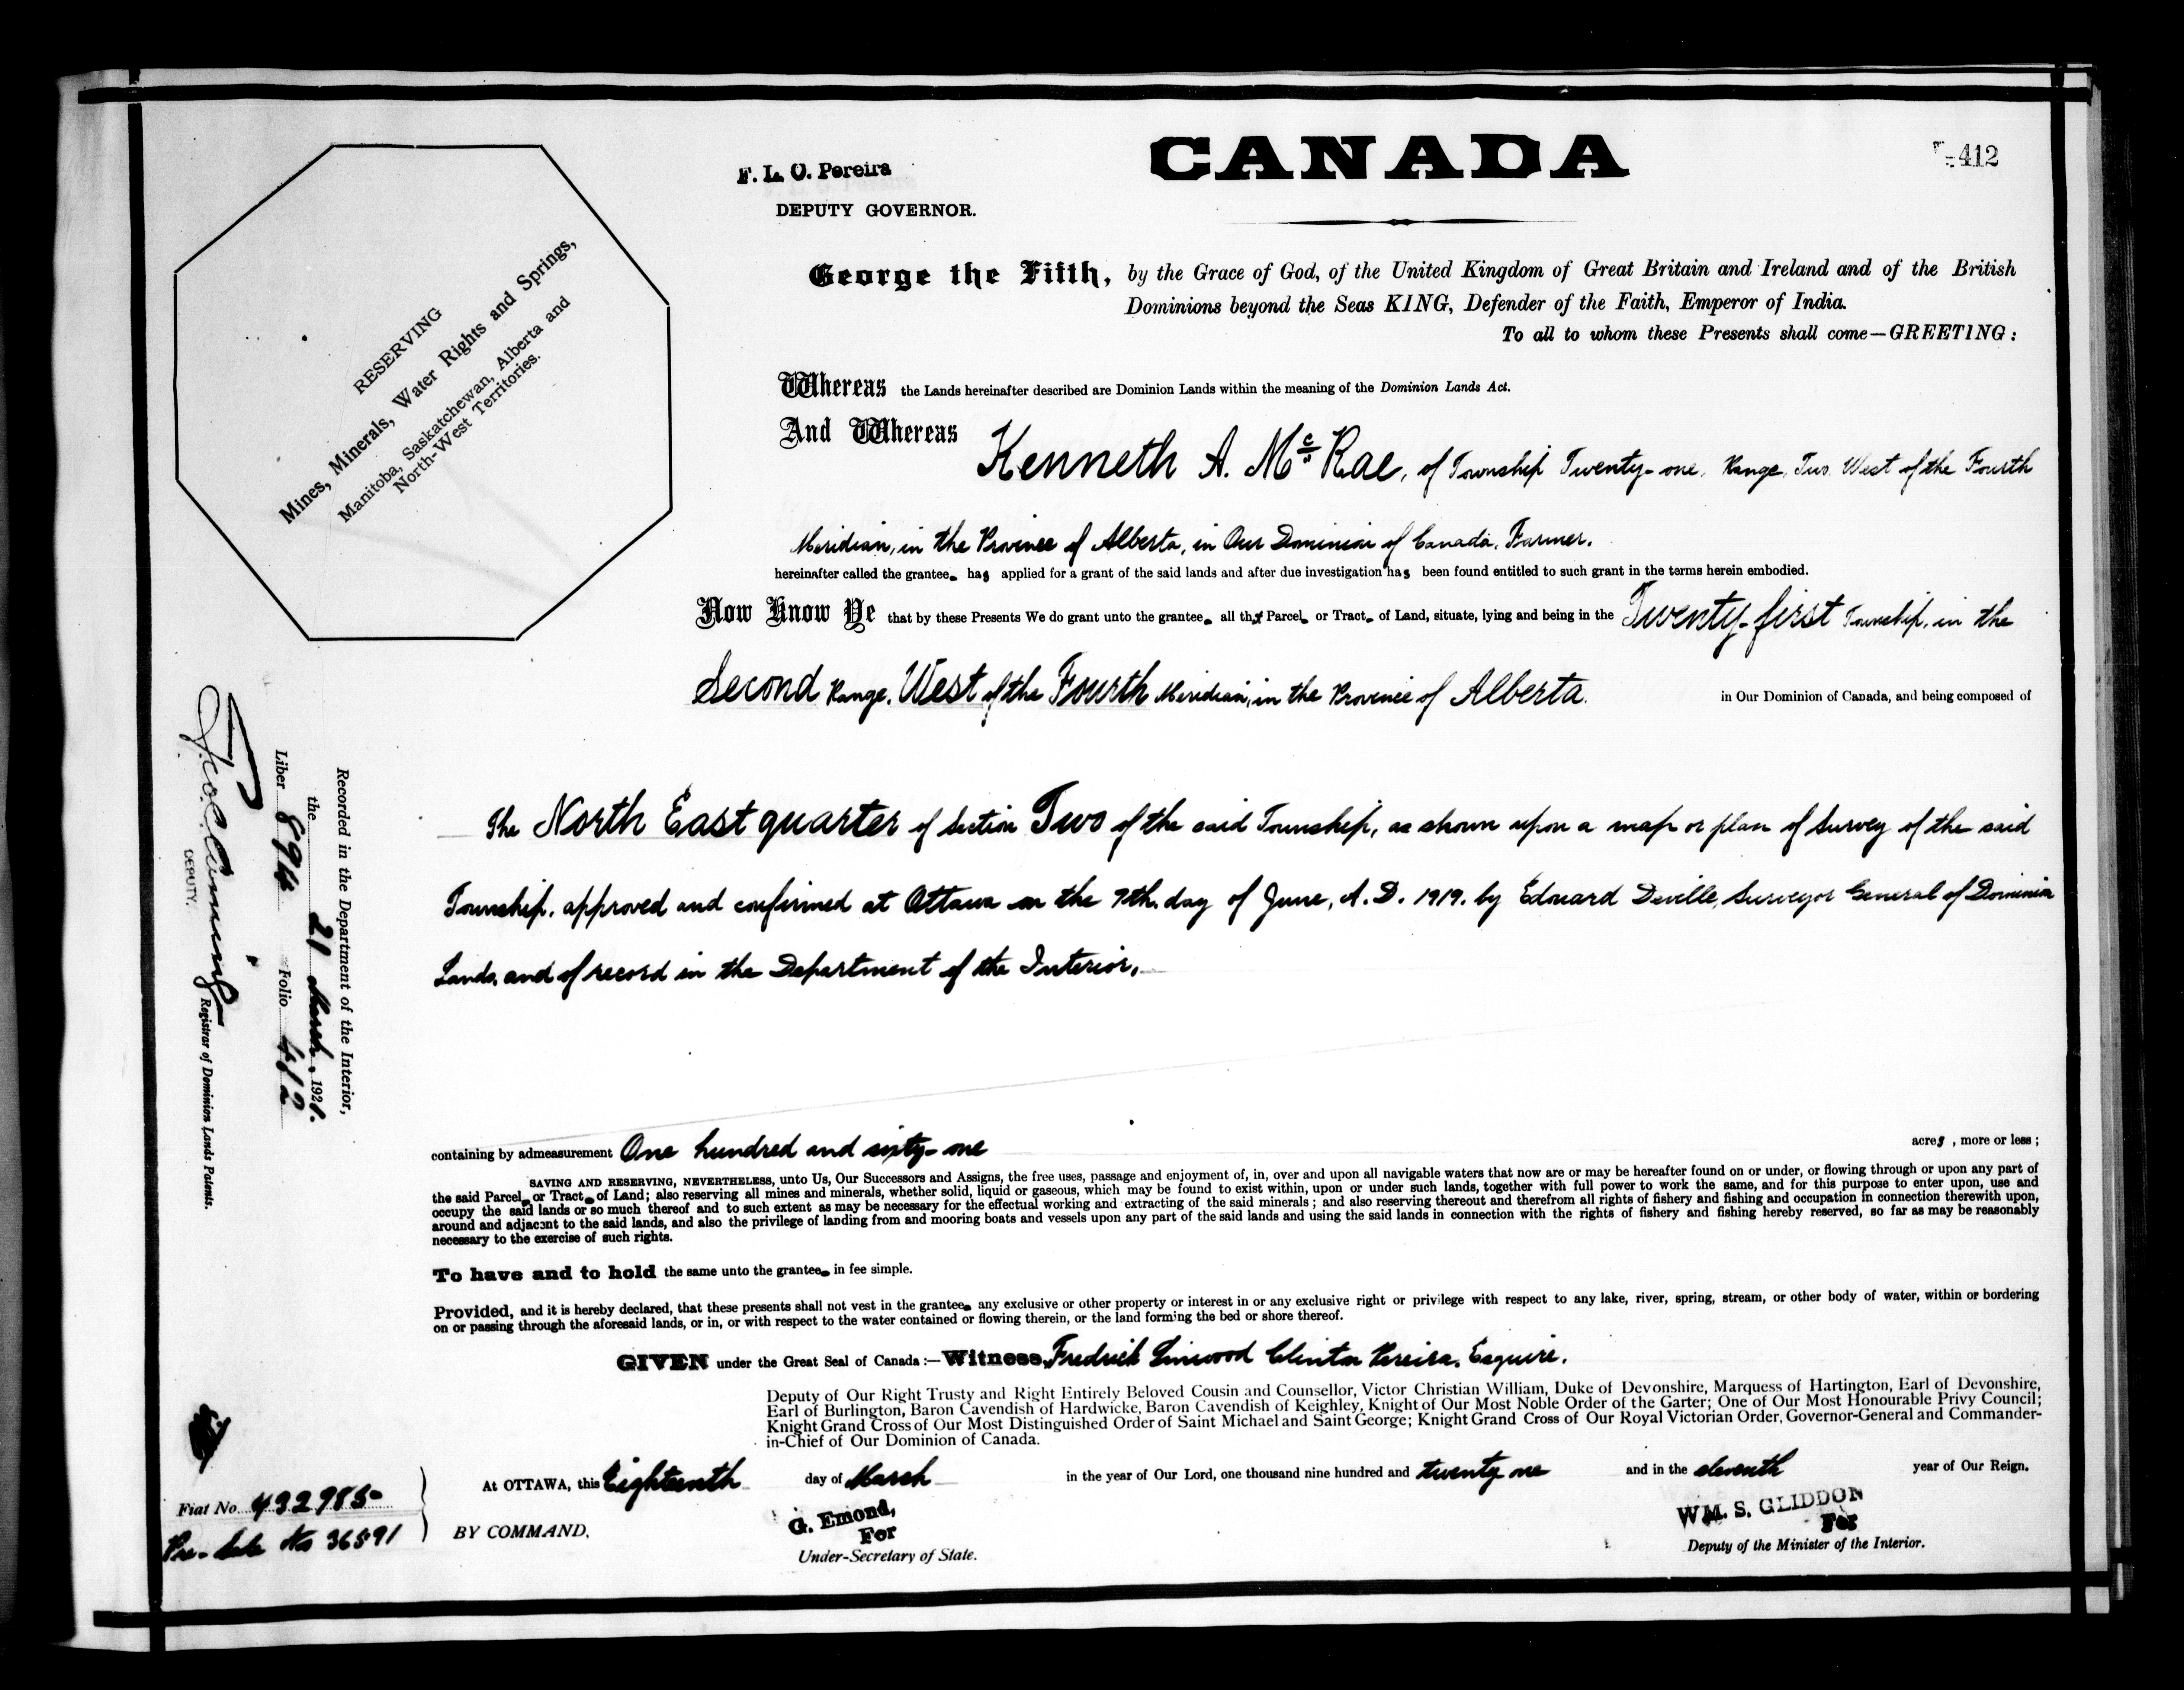 CANADA
412
F. L. C. Pereira
DEPUTY GOVERNOR.
George the Fifth, by the Grace of God, of the United Kingdom of Great Britain and Ireland and of the British
Dominions beyond the Seas KING, Defender of the Faith, Emperor of India.
To all to whom these Presents shall come—GREETING:
RESERVING
Mines, Minerals, Water Rights and Springs,
Manitoba, Saskatchewan, Alberta and
North-West Territories.
Whereas the Lands hereinafter described are Dominion Lands within the meaning of the Dominion Lands Act.
And Whereas Kenneth A. McRae, of Township Twenty-one, Range Two West of the Fourth
Meridian, in the Province of Alberta, in Our Dominion of Canada, Farmer.
hereinafter called the grantee has applied for a grant of the said lands and after due investigation has been found entitled to such grant in the terms herein embodied.
Now Know Ye that by these Presents We do grant unto the grantee all that Parcel or Tract of Land, situate, lying and being in the Twenty-first Township, in the
Second Range, West of the Fourth Meridian, in the Province of Alberta in Our Dominion of Canada, and being composed of
The North East quarter of Section Two of the said Township, as shown upon a map or plan of Survey of the said
Township, approved and confirmed at Ottawa on the 7th day of June, A.D. 1919. by Edouard Deville, Surveyor General of Dominion
Lands, and of record in the Department of the Interior.
Recorded in the Department of the Interior,
the 21 March, 1921.
Liber 894 Folio 412
DEPUTY. Registrar of Dominion Lands Patents.
containing by admeasurement One hundred and sixty-one acres, more or less;
SAVING AND RESERVING, NEVERTHELESS, unto Us, Our Successors and Assigns, the free uses, passage and enjoyment of, in, over and upon all navigable waters that now are or may be hereafter found on or under, or flowing through or upon any part of
the said Parcel or Tract of Land; also reserving all mines and minerals, whether solid, liquid or gaseous, which may be found to exist within, upon or under such lands, together with full power to work the same, and for this purpose to enter upon, use and
occupy the said lands or so much thereof and to such extent as may be necessary for the effectual working and extracting of the said minerals; and also reserving thereout and therefrom all rights of fishery and fishing and occupation in connection therewith upon,
around and adjacent to the said lands, and also the privilege of landing from and mooring boats and vessels upon any part of the said lands and using the said lands in connection with the rights of fishery and fishing hereby reserved, so far as may be reasonably
necessary to the exercise of such rights.
To have and to hold the same unto the grantee in fee simple.
Provided, and it is hereby declared, that these presents shall not vest in the grantee any exclusive or other property or interest in or any exclusive right or privilege with respect to any lake, river, spring, stream, or other body of water, within or bordering
on or passing through the aforesaid lands, or in, or with respect to the water contained or flowing therein, or the land forming the bed or shore thereof.
GIVEN under the Great Seal of Canada:—Witness, Fredrick Linwood Clinton Pereira, Esquire.
Deputy of Our Right Trusty and Right Entirely Beloved Cousin and Counsellor, Victor Christian William, Duke of Devonshire, Marquess of Hartington, Earl of Devonshire,
Earl of Burlington, Baron Cavendish of Hardwicke, Baron Cavendish of Keighley, Knight of Our Most Noble Order of the Garter; One of Our Most Honourable Privy Council;
Knight Grand Cross of Our Most Distinguished Order of Saint Michael and Saint George; Knight Grand Cross of Our Royal Victorian Order, Governor-General and Commander-
in-Chief of Our Dominion of Canada.
At OTTAWA, this Eighteenth day of March in the year of Our Lord, one thousand nine hundred and twenty one and in the eleventh year of Our Reign.
Fiat No. 432985
Pre-Sale No 36591
BY COMMAND,
G. Emond,
For
Under-Secretary of State.
WM. S. GLIDDON
For
Deputy of the Minister of the Interior.